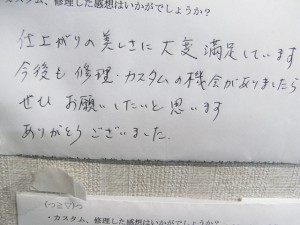 カスタム、修理した感想はいかがでしょうか？
仕上がりの美しさに大変満足しています
今後も修理・カスタムの機会がありましたら
ぜひお願いしたいと思います
ありがとうございました.
(っ≧▽)っ
・カスタム、修理した感想はいかがでしょうか？